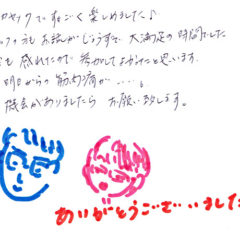 カヤックですごく楽しめました♪
フの方もお話がじょうずで、大満足の時間でした
も 感れたので 参加してよかったと思います.
明日からの筋肉痛が・・・・。
機会がありましたら お願い致します。
ありがとうございました